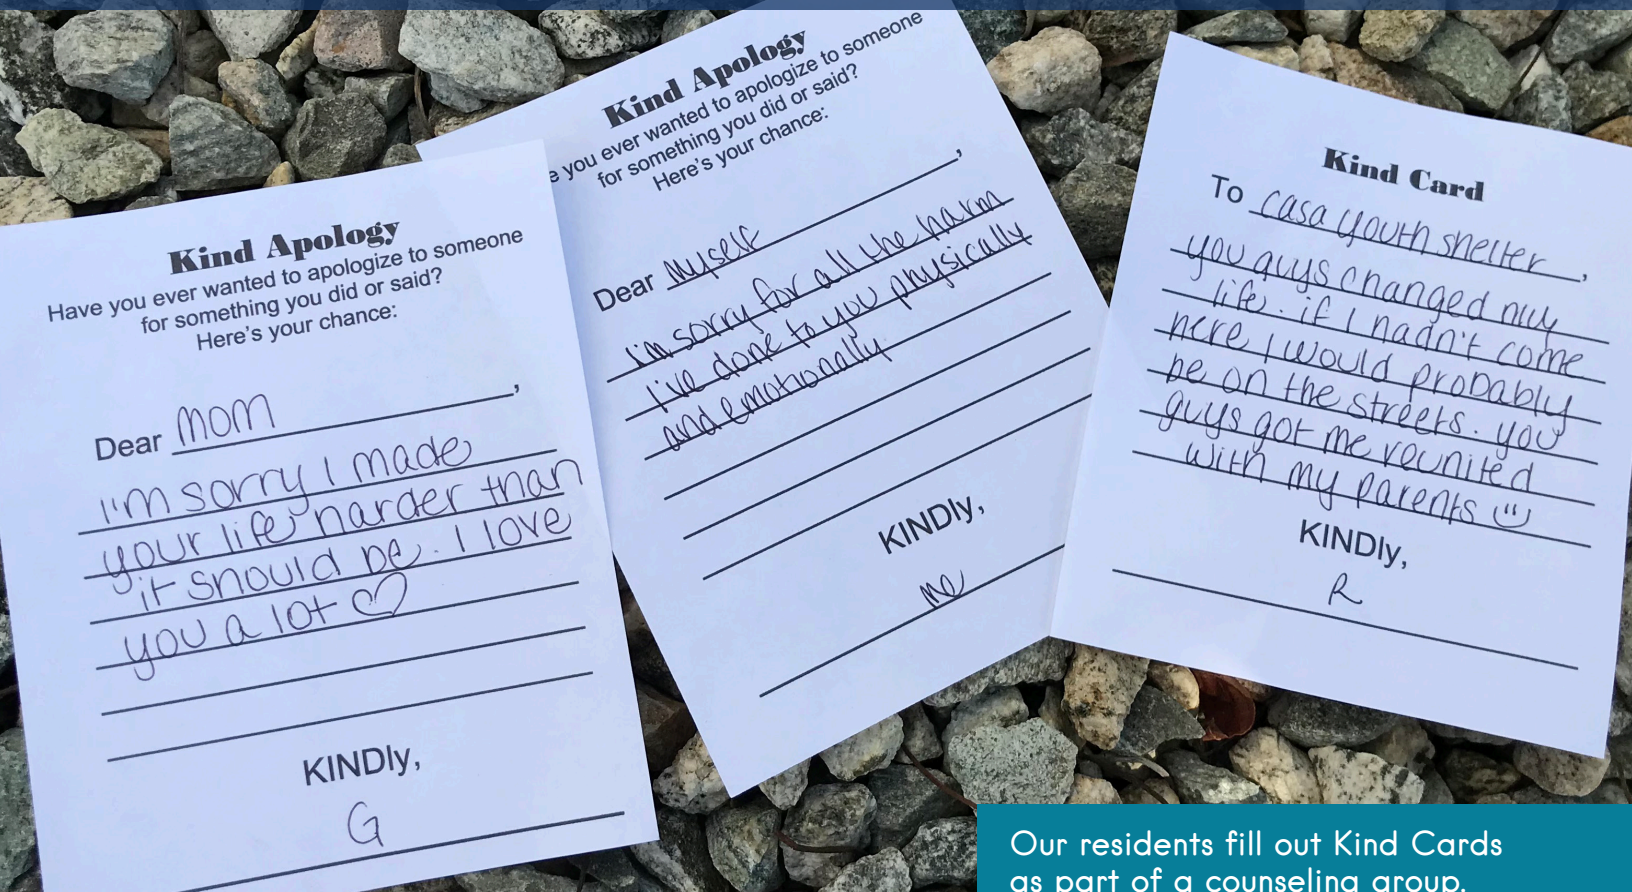 Kind Apology
Have you ever wanted to apologize to someone
for something you did or said?
Here's your chance:
Dear mom,
I'm sorry I made
your life harder than
it should be. I love
you a lot ♡
KINDly,
G
Kind Apology
e you ever wanted to apologize to someone
for something you did or said?
Here's your chance:
Dear Myself,
I'm sorry for all the harm
I've done to you physically
and emotionally
KINDly,
me
Kind Card
To casa youth shelter,
you guys changed my
life. if I hadn't come
here I would probably
be on the streets. you
guys got me reunited
with my parents
KINDly,
R
Our residents fill out Kind Cards
as part of a counseling group.